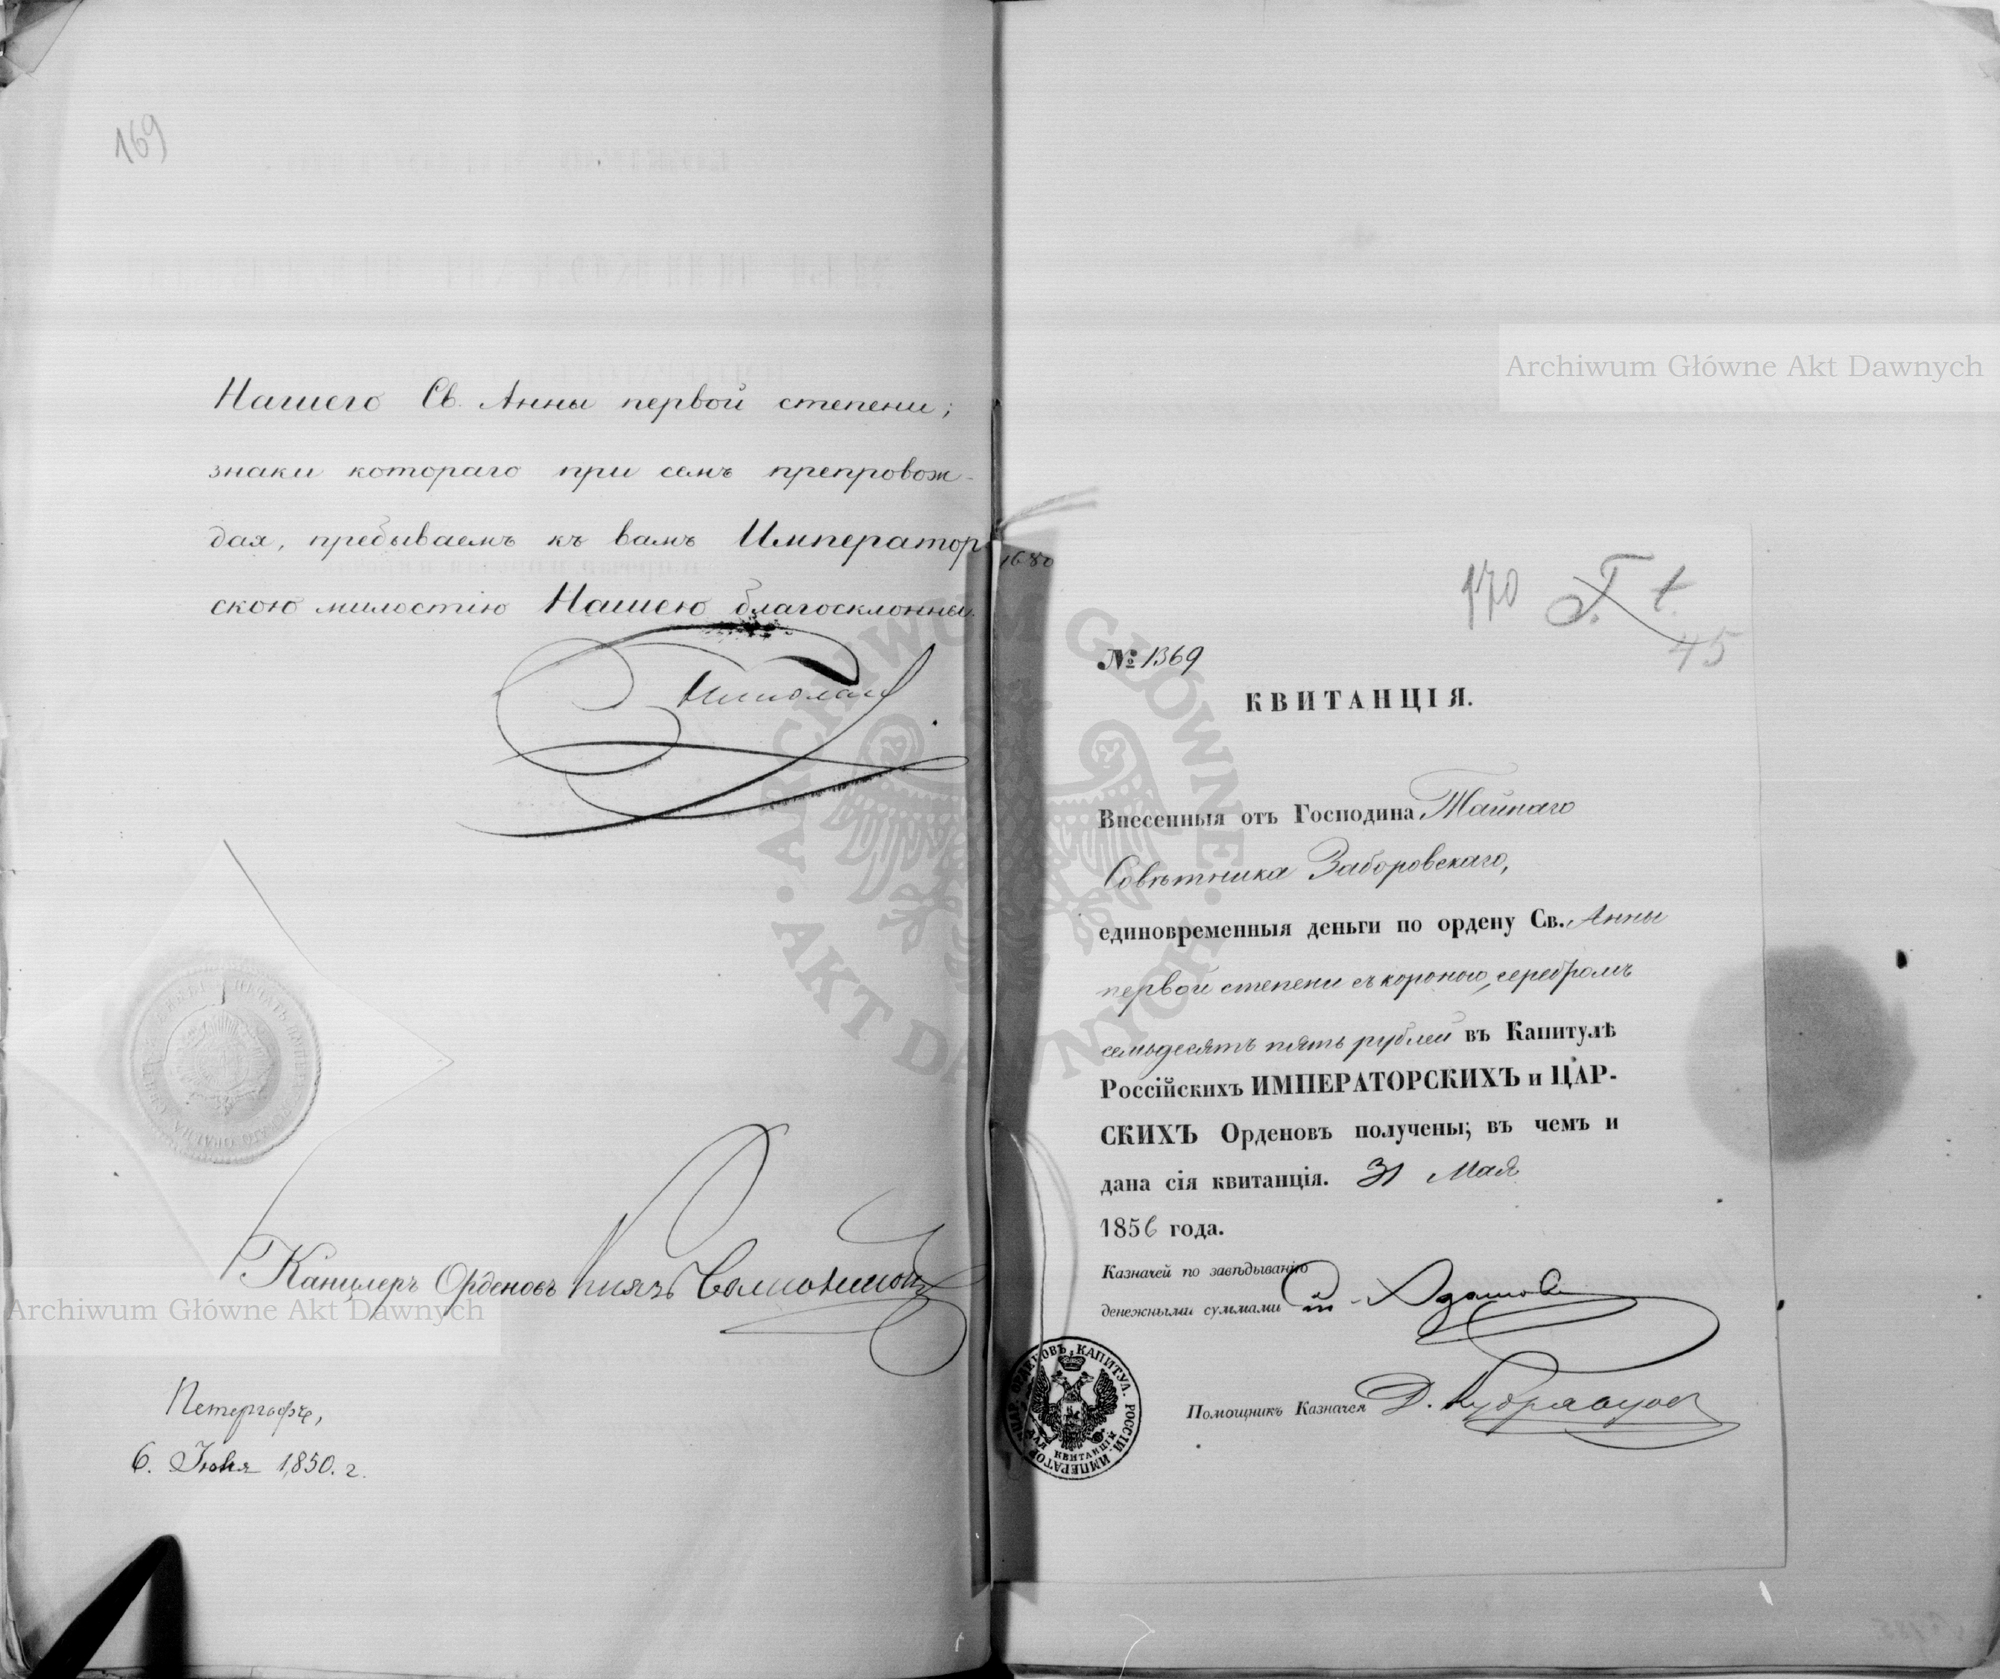 169
Нашего Св. Анны первой степени;
знаки котораго при семъ препровож-
дая, пребываемъ къ вамъ Император
скою милостію Нашею благосклонны.
Николай
Канцлеръ Орденовъ Князь Волконской
Петергофъ,
6. Іюня 1850. г.
Archiwum Główne Akt Dawnych
1680
170
45
№ 1369
КВИТАНЦІЯ.
Внесенныя отъ Господина Тайнаго
Совѣтника Заборовскаго,
единовременныя деньги по ордену Св. Анны
первой степени съ короною, серебромъ
семьдесятъ пять рублей въ Капитулѣ
Россійскихъ ИМПЕРАТОРСКИХЪ и ЦАР-
СКИХЪ Орденовъ получены; въ чемъ и
дана сія квитанція. 31 Мая
1856 года.
Казначей по завѣдыванію
денежными суммами
Помощникъ Казначея Д. Кудрявцовъ
КАПИТУЛ. РОССІЙ. ИМПЕРАТОР. И ЦАР. ОРДЕНОВЪ
ДЛЯ КВИТАНЦІЯ
Archiwum Główne Akt Dawnych
ARCHIWUM GŁÓWNE · AKT DAWNYCH ·